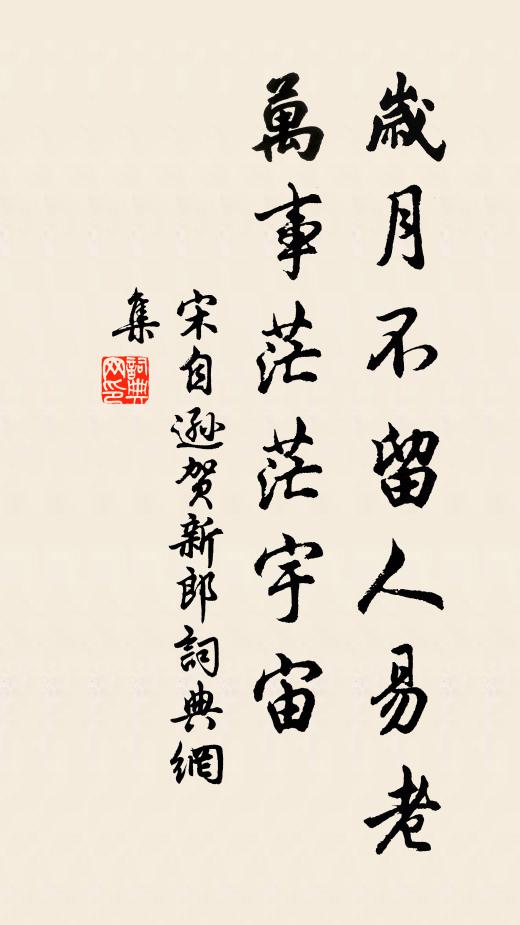 歲月不留人易老
萬事茫茫宇宙
宋自遜賀新郎詞典網
集
詞典
网印